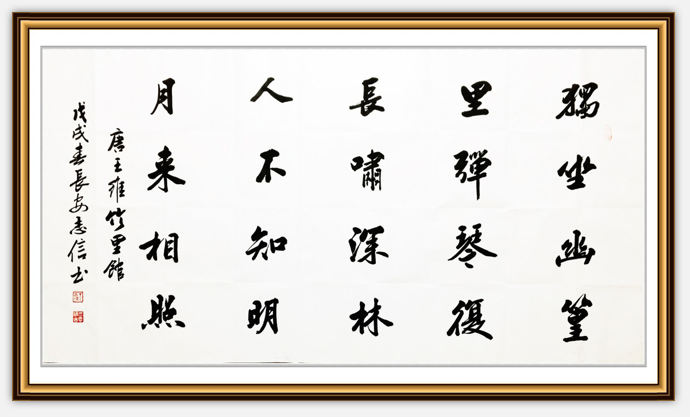 獨坐幽篁
里彈琴復
長嘯深林
人不知明
月来相照
唐王維竹里館
戊戌春長安志信书